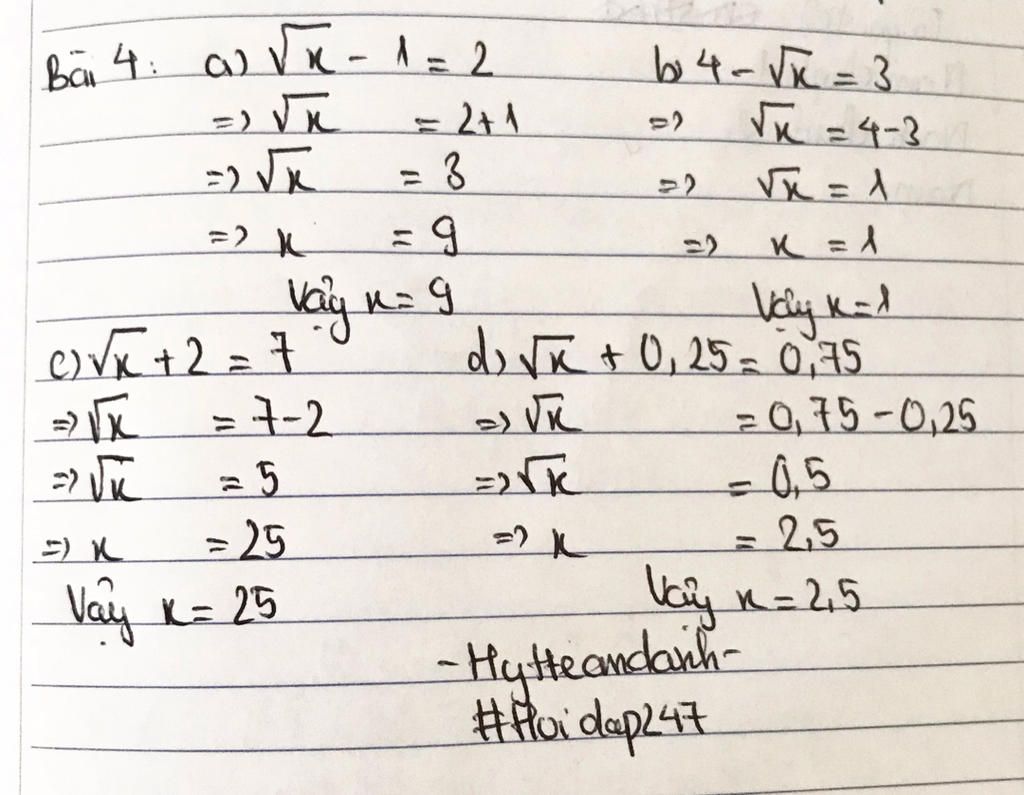 Bài 4: a) √x - 1 = 2
=> √x = 2+1
=> √x = 3
=> x = 9
Vậy x = 9
b) 4 - √x = 3
=> √x = 4-3
=> √x = 1
=> x = 1
Vậy x = 1
c) √x + 2 = 7
=> √x = 7-2
=> √x = 5
=> x = 25
Vậy x = 25
d) √x + 0,25 = 0,75
=> √x = 0,75 - 0,25
=> √x = 0,5
=> x = 2,5
Vậy x = 2,5
-Hytteamdanh-
#Hoidap247